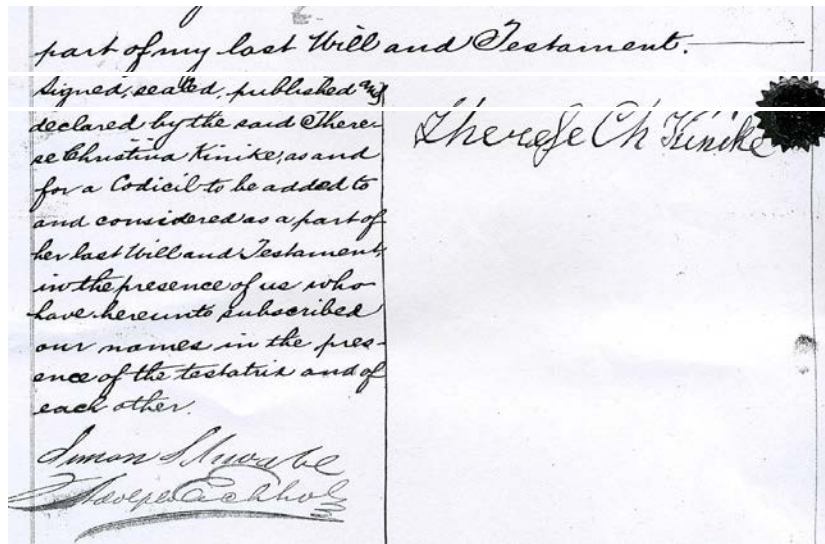 part of my last Will and Testament.
signed, sealed, published and
declared by the said There-
se Christina Kinike, as and
for a Codicil to be added to
and considered as a part of
her last Will and Testament,
in the presence of us who
have hereunto subscribed
our names in the pres-
ence of the testatrix and of
each other.
Therese Ch Kinike
Simon
Eckholz